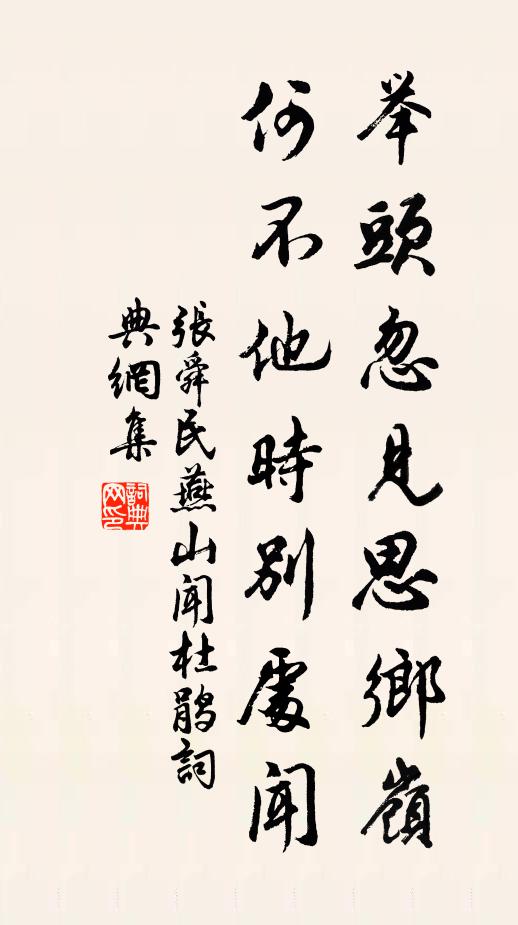 举頭忽見思鄉嶺
何不他時別處聞
張舜民燕山聞杜鹃詞
典網集
詞典
网印